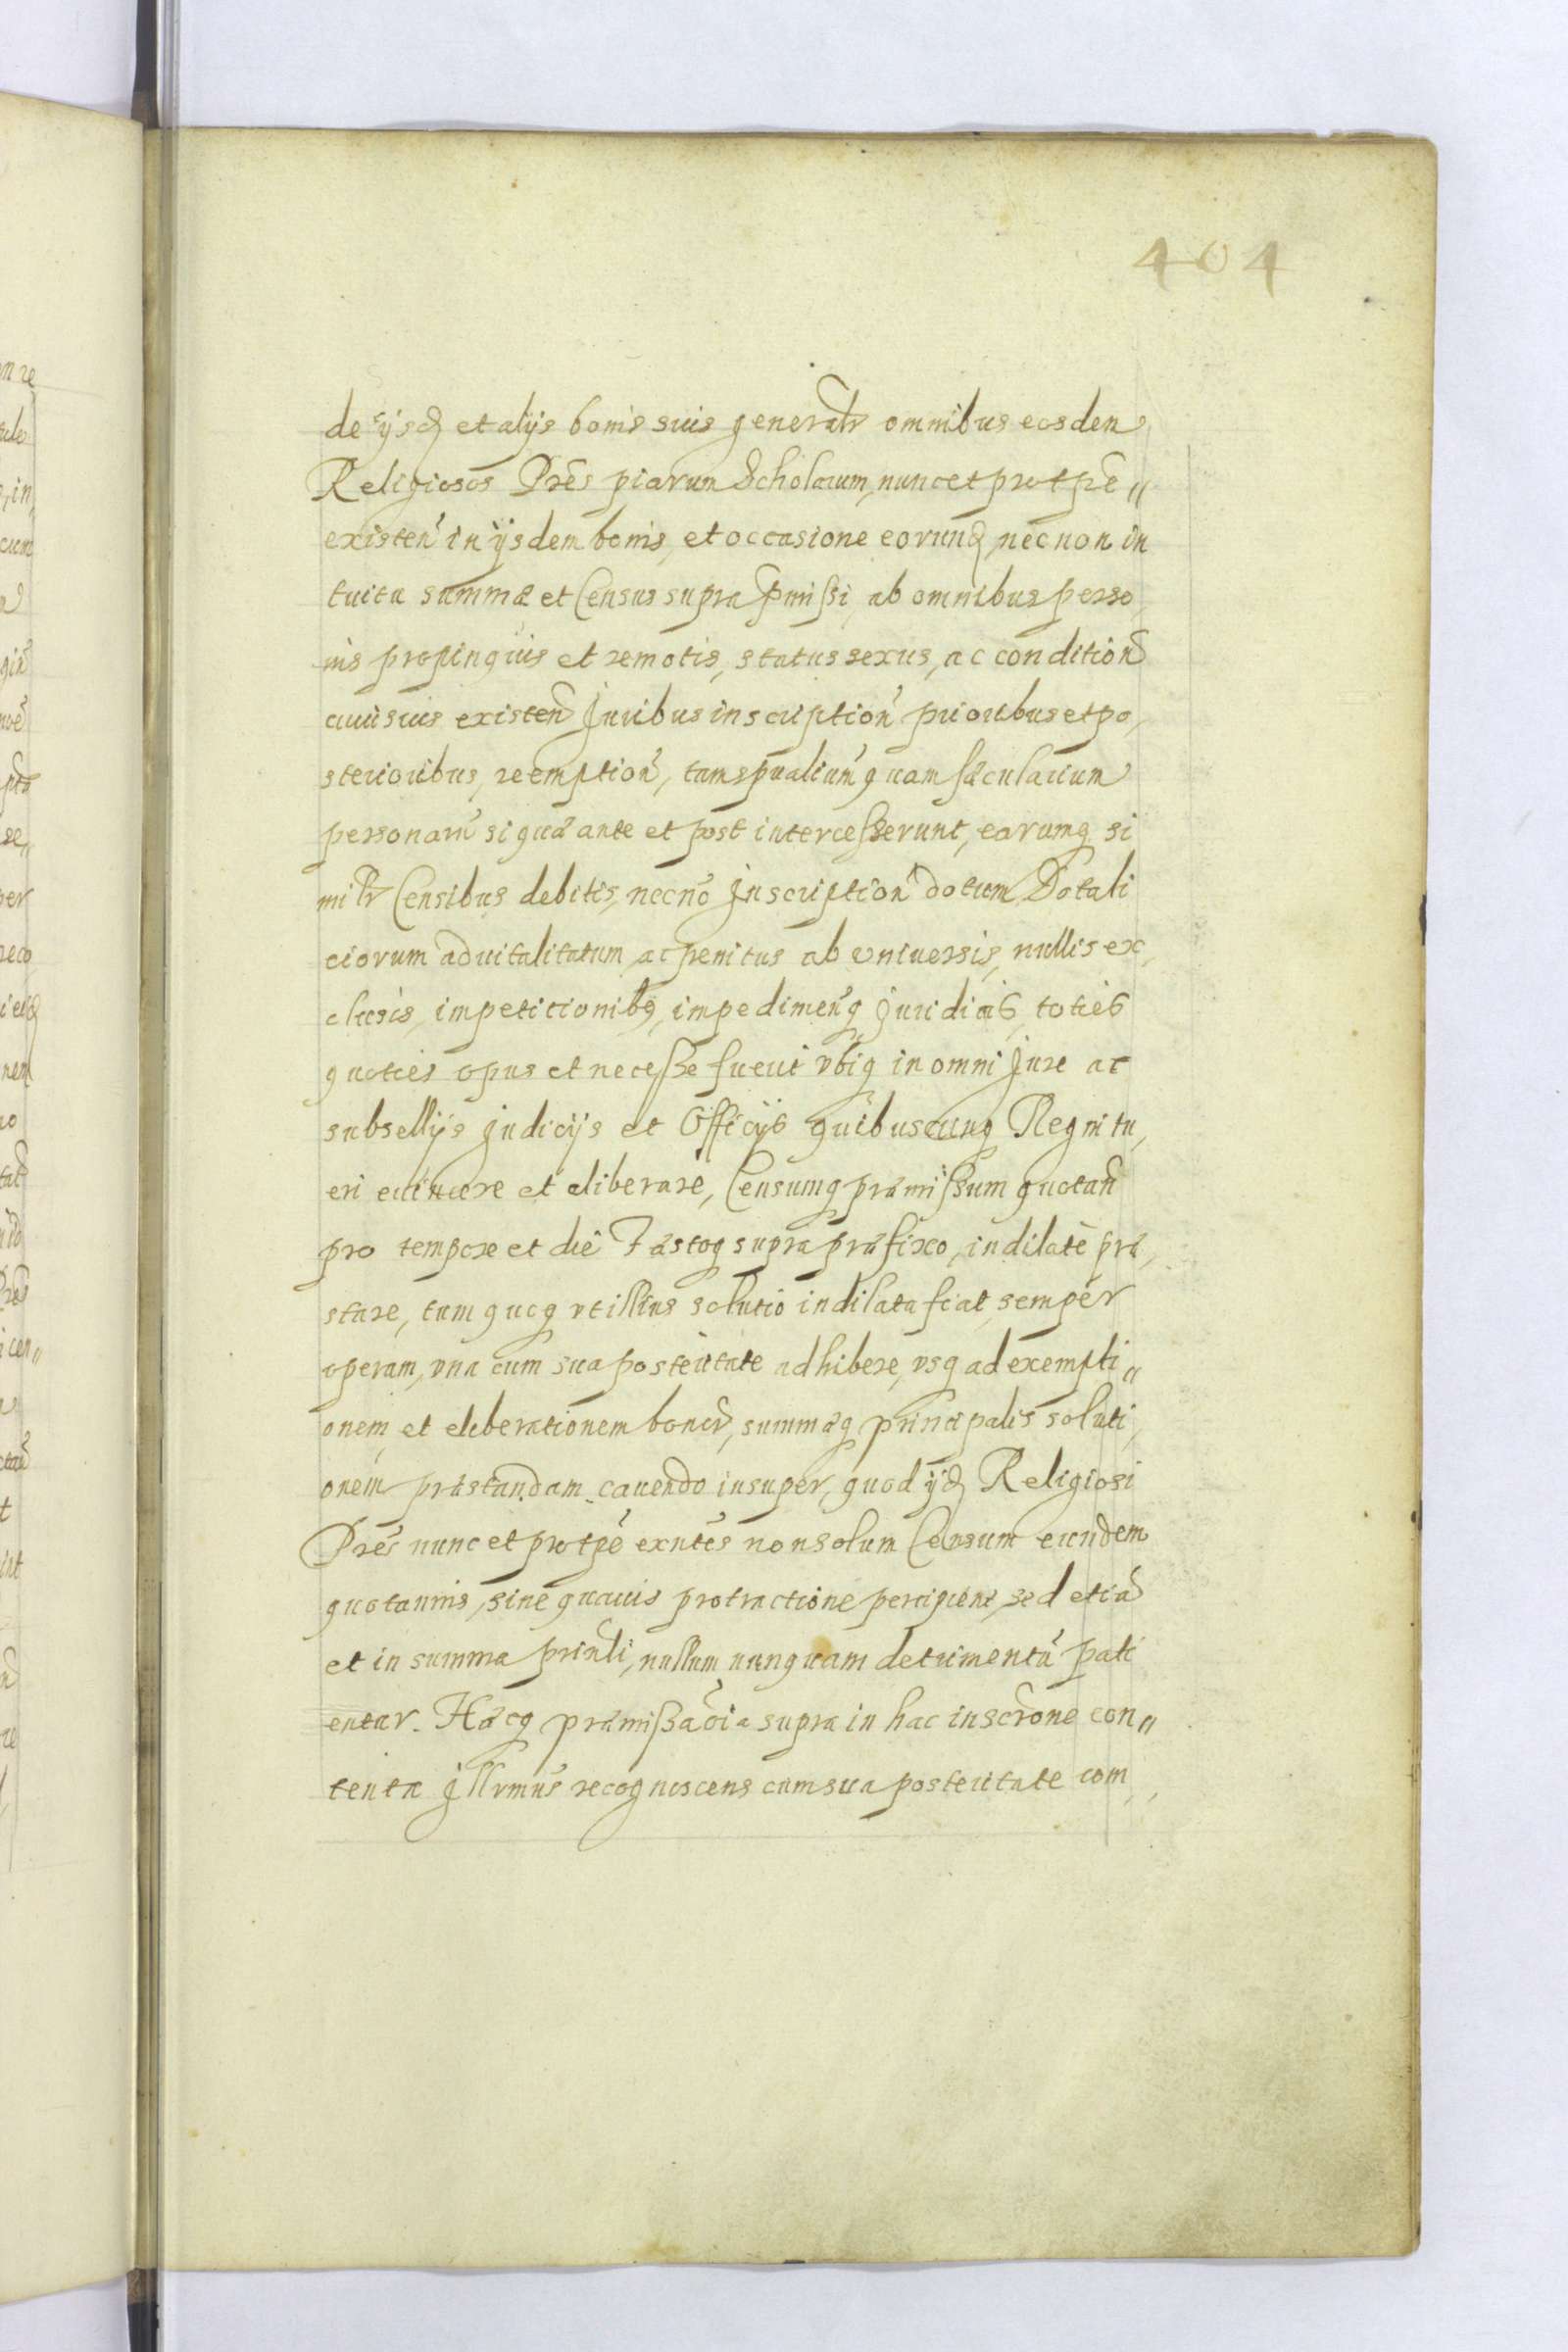 404
de ijsd et alijs bonis suis generalr omnibus eosdem
Religiosos Pres piarum Scholarum, nunc et pro tpe
existen in ijsdem bonis, et occasione eorund, nec non in
tuitu summæ et Census supra pmissi, ab omnibus perso
nis propinquis et remotis, status sexus, ac condition
cuiusuis existen Juribus inscription prioribus et po,
sterioribus, reemption, tam spualium quam sæcularium
personarum si quæ ante et post intercesserunt, earumq si
milr Censibus debitis, necno Inscription dotum Dotali
ciorum aduitalitatum ac penitus ab vniuersis, nullis ex,
clusis, impetitionibq, impedimenq Juridicis, toties
quoties opus et necesse fuerit vbiq in omni Jure ac
subsellijs Judicijs et Officijs quibuscunq Regni tu,
eri euincere et eliberare, Censumq præmissum quotan
pro tempore et die Festoq supra præfixo, indilatè præ,
stare, tum quoq vt illius solutio indilata fiat, semper
operam, vna cum sua posteritate adhibere, vsq ad exempti,,
onem, et eliberationem bonor, summæq principalis soluti,
onem præstandam. cauendo insuper, quod ijd Religiosi
Pres nunc et pro tpe exntes non solum Censum eundem
quotannis, sine quauis protractione percipient, sed etia
et in summa prinli, nullum nunquam detrimentu pati
entur. Hæcq præmissa oia supra in hac inscrone con,,
tenta Jllrmus recognoscens cum sua posteritate com,,